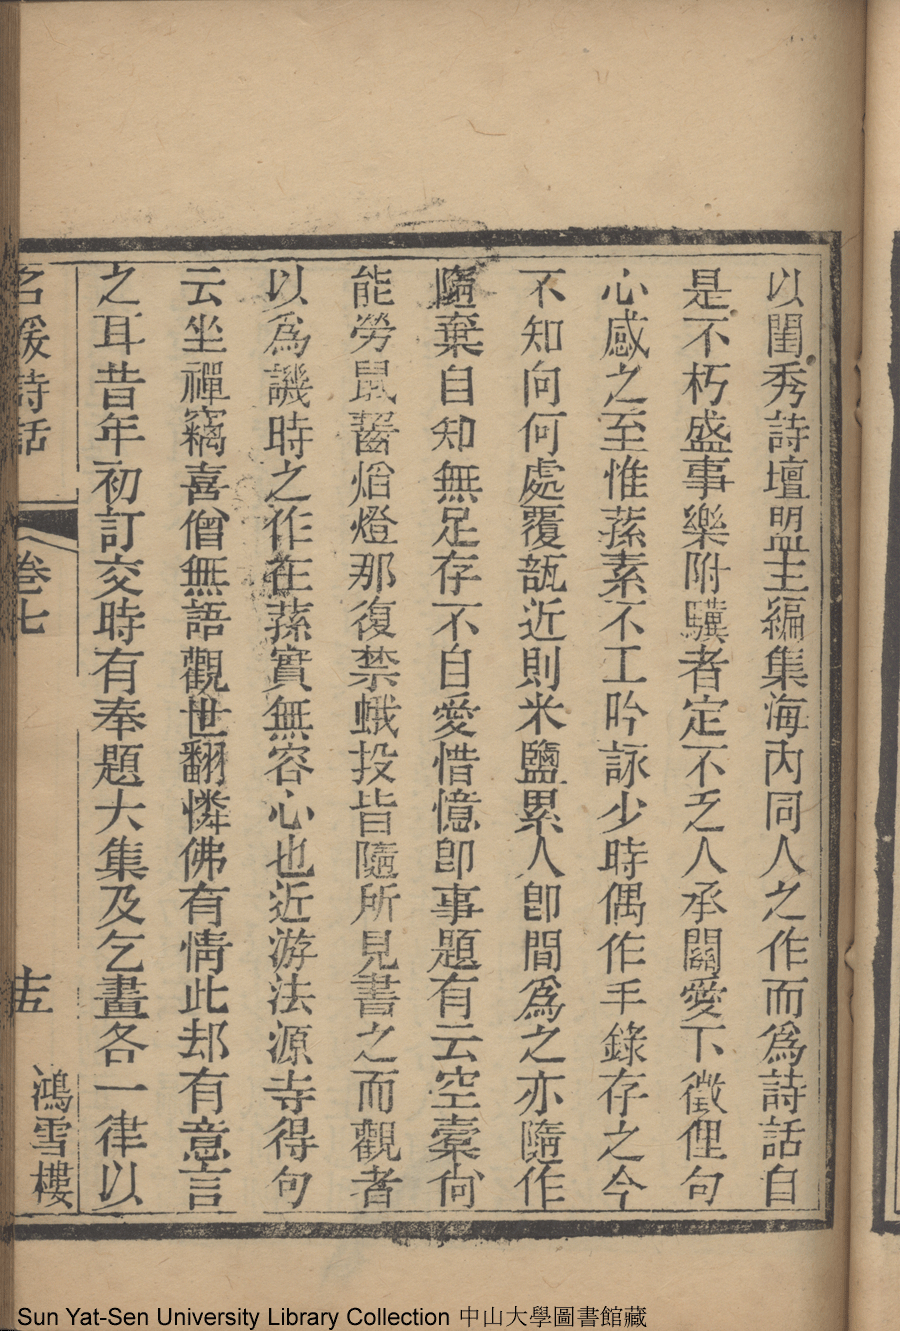 以閨秀詩壇盟主編集海內同人之作而爲詩話自
是不朽盛事樂附驥者定不乏人承關愛下徵俚句
心感之至惟蓀素不工吟詠少時偶作手錄存之今
不知向何處覆瓿近則米鹽累人卽間爲之亦隨作
隨棄自知無足存不自愛惜憶卽事題有云空橐尙
能勞鼠齧熖燈那復禁蛾投皆隨所見書之而觀者
以爲譏時之作在蓀實無容心也近游法源寺得句
云坐禪竊喜僧無語觀世翻憐佛有情此却有意言
之耳昔年初訂交時有奉題大集及乞畫各一律以
名媛詩話
卷七
十五
鴻雪樓
Sun Yat-Sen University Library Collection 中山大學圖書館藏